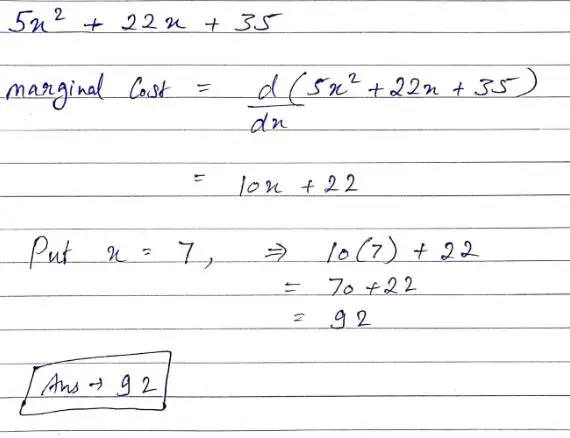 5x² + 22x + 35
marginal Cost = d/dx (5x² + 22x + 35)
= 10x + 22
Put x = 7, ⇒ 10(7) + 22
= 70 + 22
= 92
Ans → 92